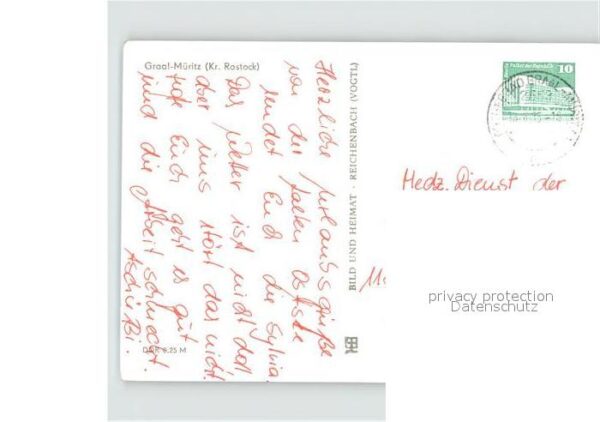 Graal-Müritz (Kr. Rostock)
Herzliche Urlaubsgrüße
von der kalten Ostsee
sendet Euch die Sylvia.
Das Wetter ist nicht doll
aber uns stört das nicht.
Euch geht es gut
und die Arbeit schmeckt.
Tschü Bi.
DDR 0,25 M
BILD UND HEIMAT · REICHENBACH (VOGTL)
10
Palast der Republik
GRAAL-MÜRITZ
Medz. Dienst der
privacy protection
Datenschutz